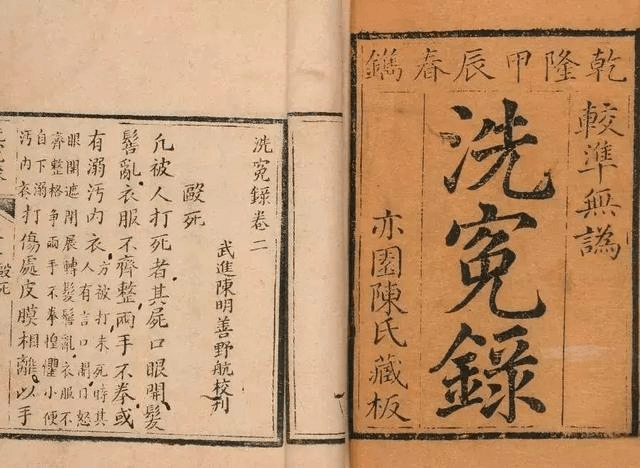 乾隆甲辰春鐫
較準無譌
洗寃錄
亦園陳氏藏板
洗寃錄卷二
武進陳明善野航校刊
毆死
凡被人打死者其屍口眼開髮
髻亂衣服不齊整兩手不拳或
有溺汚內衣
方被打未死時其
人有言口開口怒
眼開遮閉展轉髮髻亂衣服不
齊整格爭兩手不拳惶懼小便
自下溺
汚內衣
打傷處皮膜相離以手
毆死